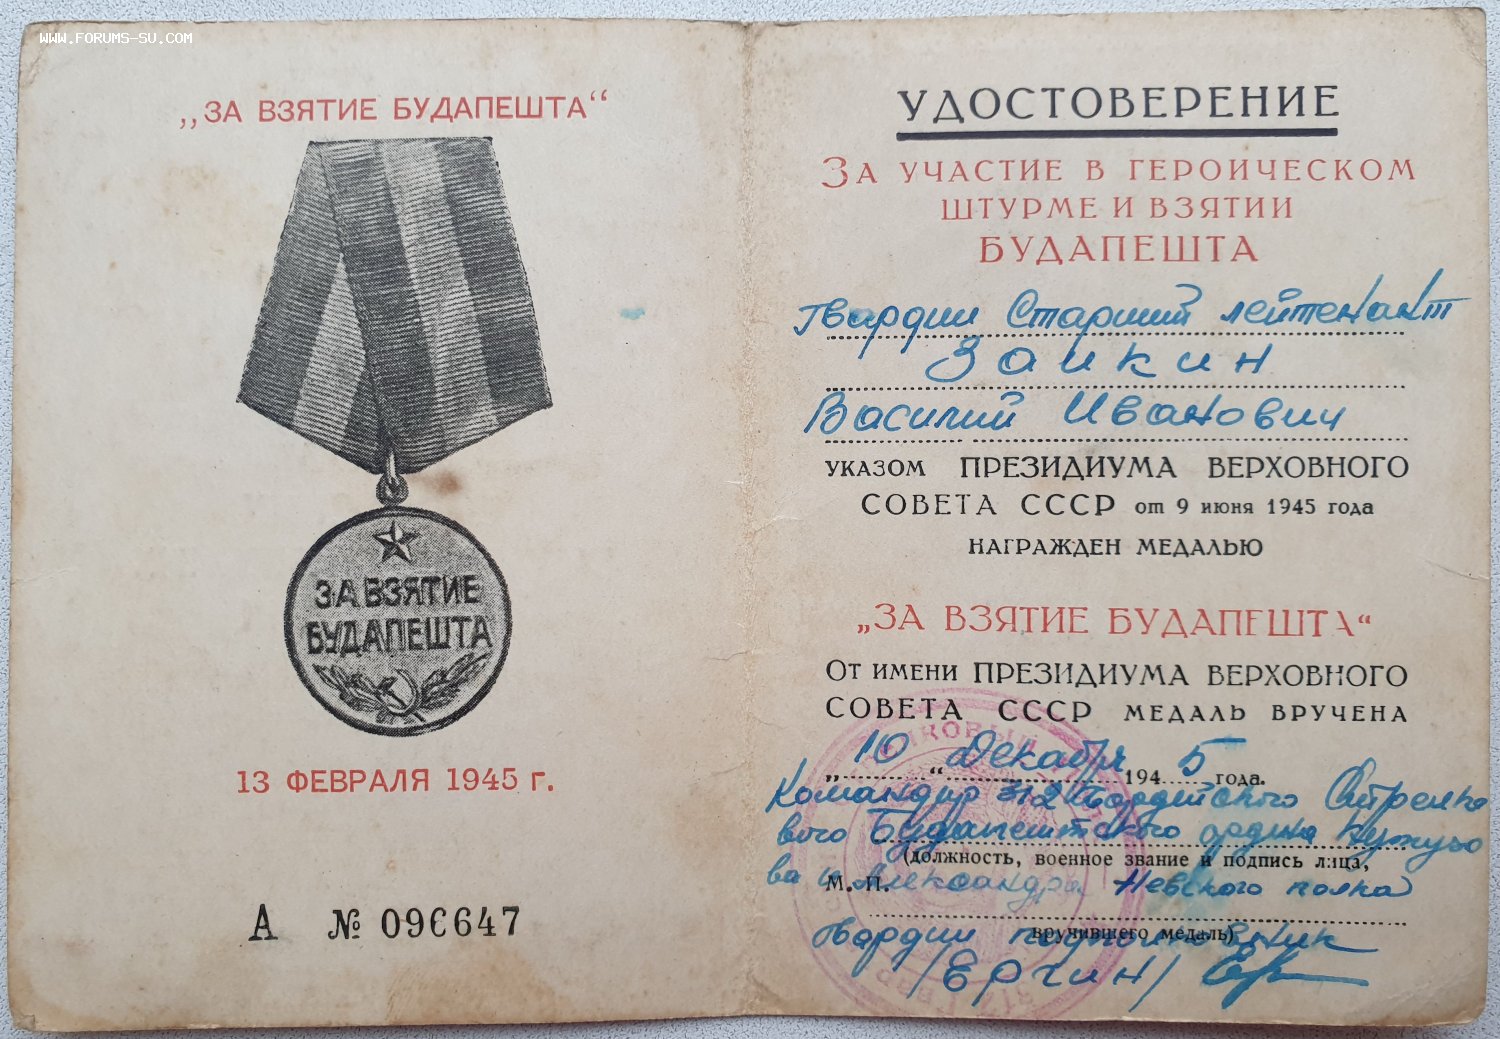 WWW.FORUMS-SU.COM
„ЗА ВЗЯТИЕ БУДАПЕШТА“
ЗА ВЗЯТИЕ
БУДАПЕШТА
13 ФЕВРАЛЯ 1945 г.
А № 096647
УДОСТОВЕРЕНИЕ
ЗА УЧАСТИЕ В ГЕРОИЧЕСКОМ
ШТУРМЕ И ВЗЯТИИ
БУДАПЕШТА
Гвардии Старший лейтенант
Заикин
Василий Иванович
УКАЗОМ ПРЕЗИДИУМА ВЕРХОВНОГО
СОВЕТА СССР от 9 июня 1945 года
НАГРАЖДЕН МЕДАЛЬЮ
„ЗА ВЗЯТИЕ БУДАПЕШТА“
ОТ ИМЕНИ ПРЕЗИДИУМА ВЕРХОВНОГО
СОВЕТА СССР МЕДАЛЬ ВРУЧЕНА
„10“ Декабря 1945 года.
Командир 312 Гвардейского Стрелко
вого Будапештского ордена Кутузо
(должность, военное звание и подпись лица,
М. П.
ва и Александра Невского полка
вручившего медаль)
Гвардии подполковник
/Ергин/